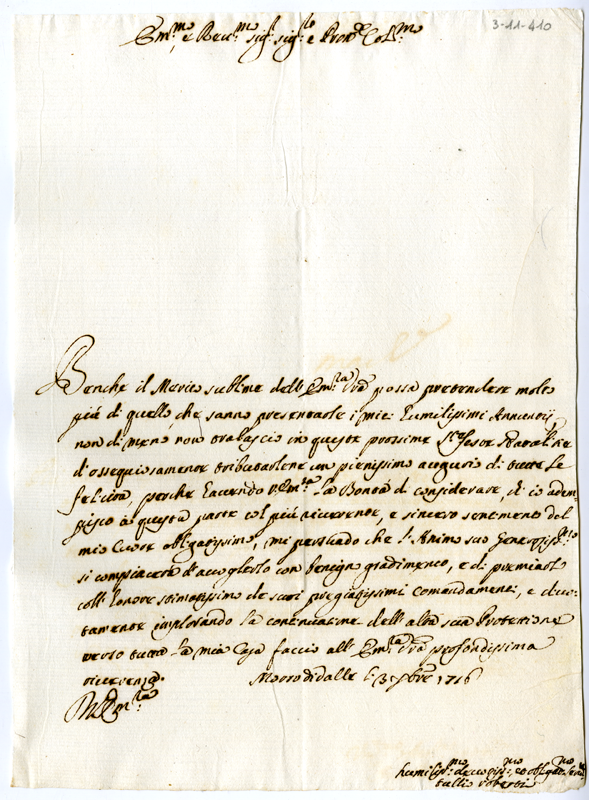 3-11-410
Em.mo e Rev.mo Sig.r Sig.r e Pron.e Col.mo
Benche il Merito sublime dell'Em.za V̄ra possa pretendere molto
più di quello, che sanno presentarle i miei humilissimi Annuntij
non di meno non tralascio in queste prossime S.te feste Natalitie
d'ossequiosamente tributarlene un pienissimo augurio di tutte le
felicità, perche havendo V. Em.za la Bontà di considerare, ch'io adem-
pisco à questa parte col più riverente, e sincero sentimento del
mio Cuore obligatissimo, mi persuado che l'Animo suo Generosiss.mo
si compiacerà d'accoglierlo con benigno gradimento, e di premiarlo
coll'honore stimatissimo de suoi pregiatissimi comandamenti, e divo-
tamente implorando la continuatione dell'alta sua Protettione
verso tutta la mia Casa faccio all'Em.za V̄ra profondissima
riverenza.
Morro di Valle li 3 Xbre 1716
D.V.Em.za
humiliss.mo devotiss.mo et obligat.mo Ser.re
Tullio Ruberti